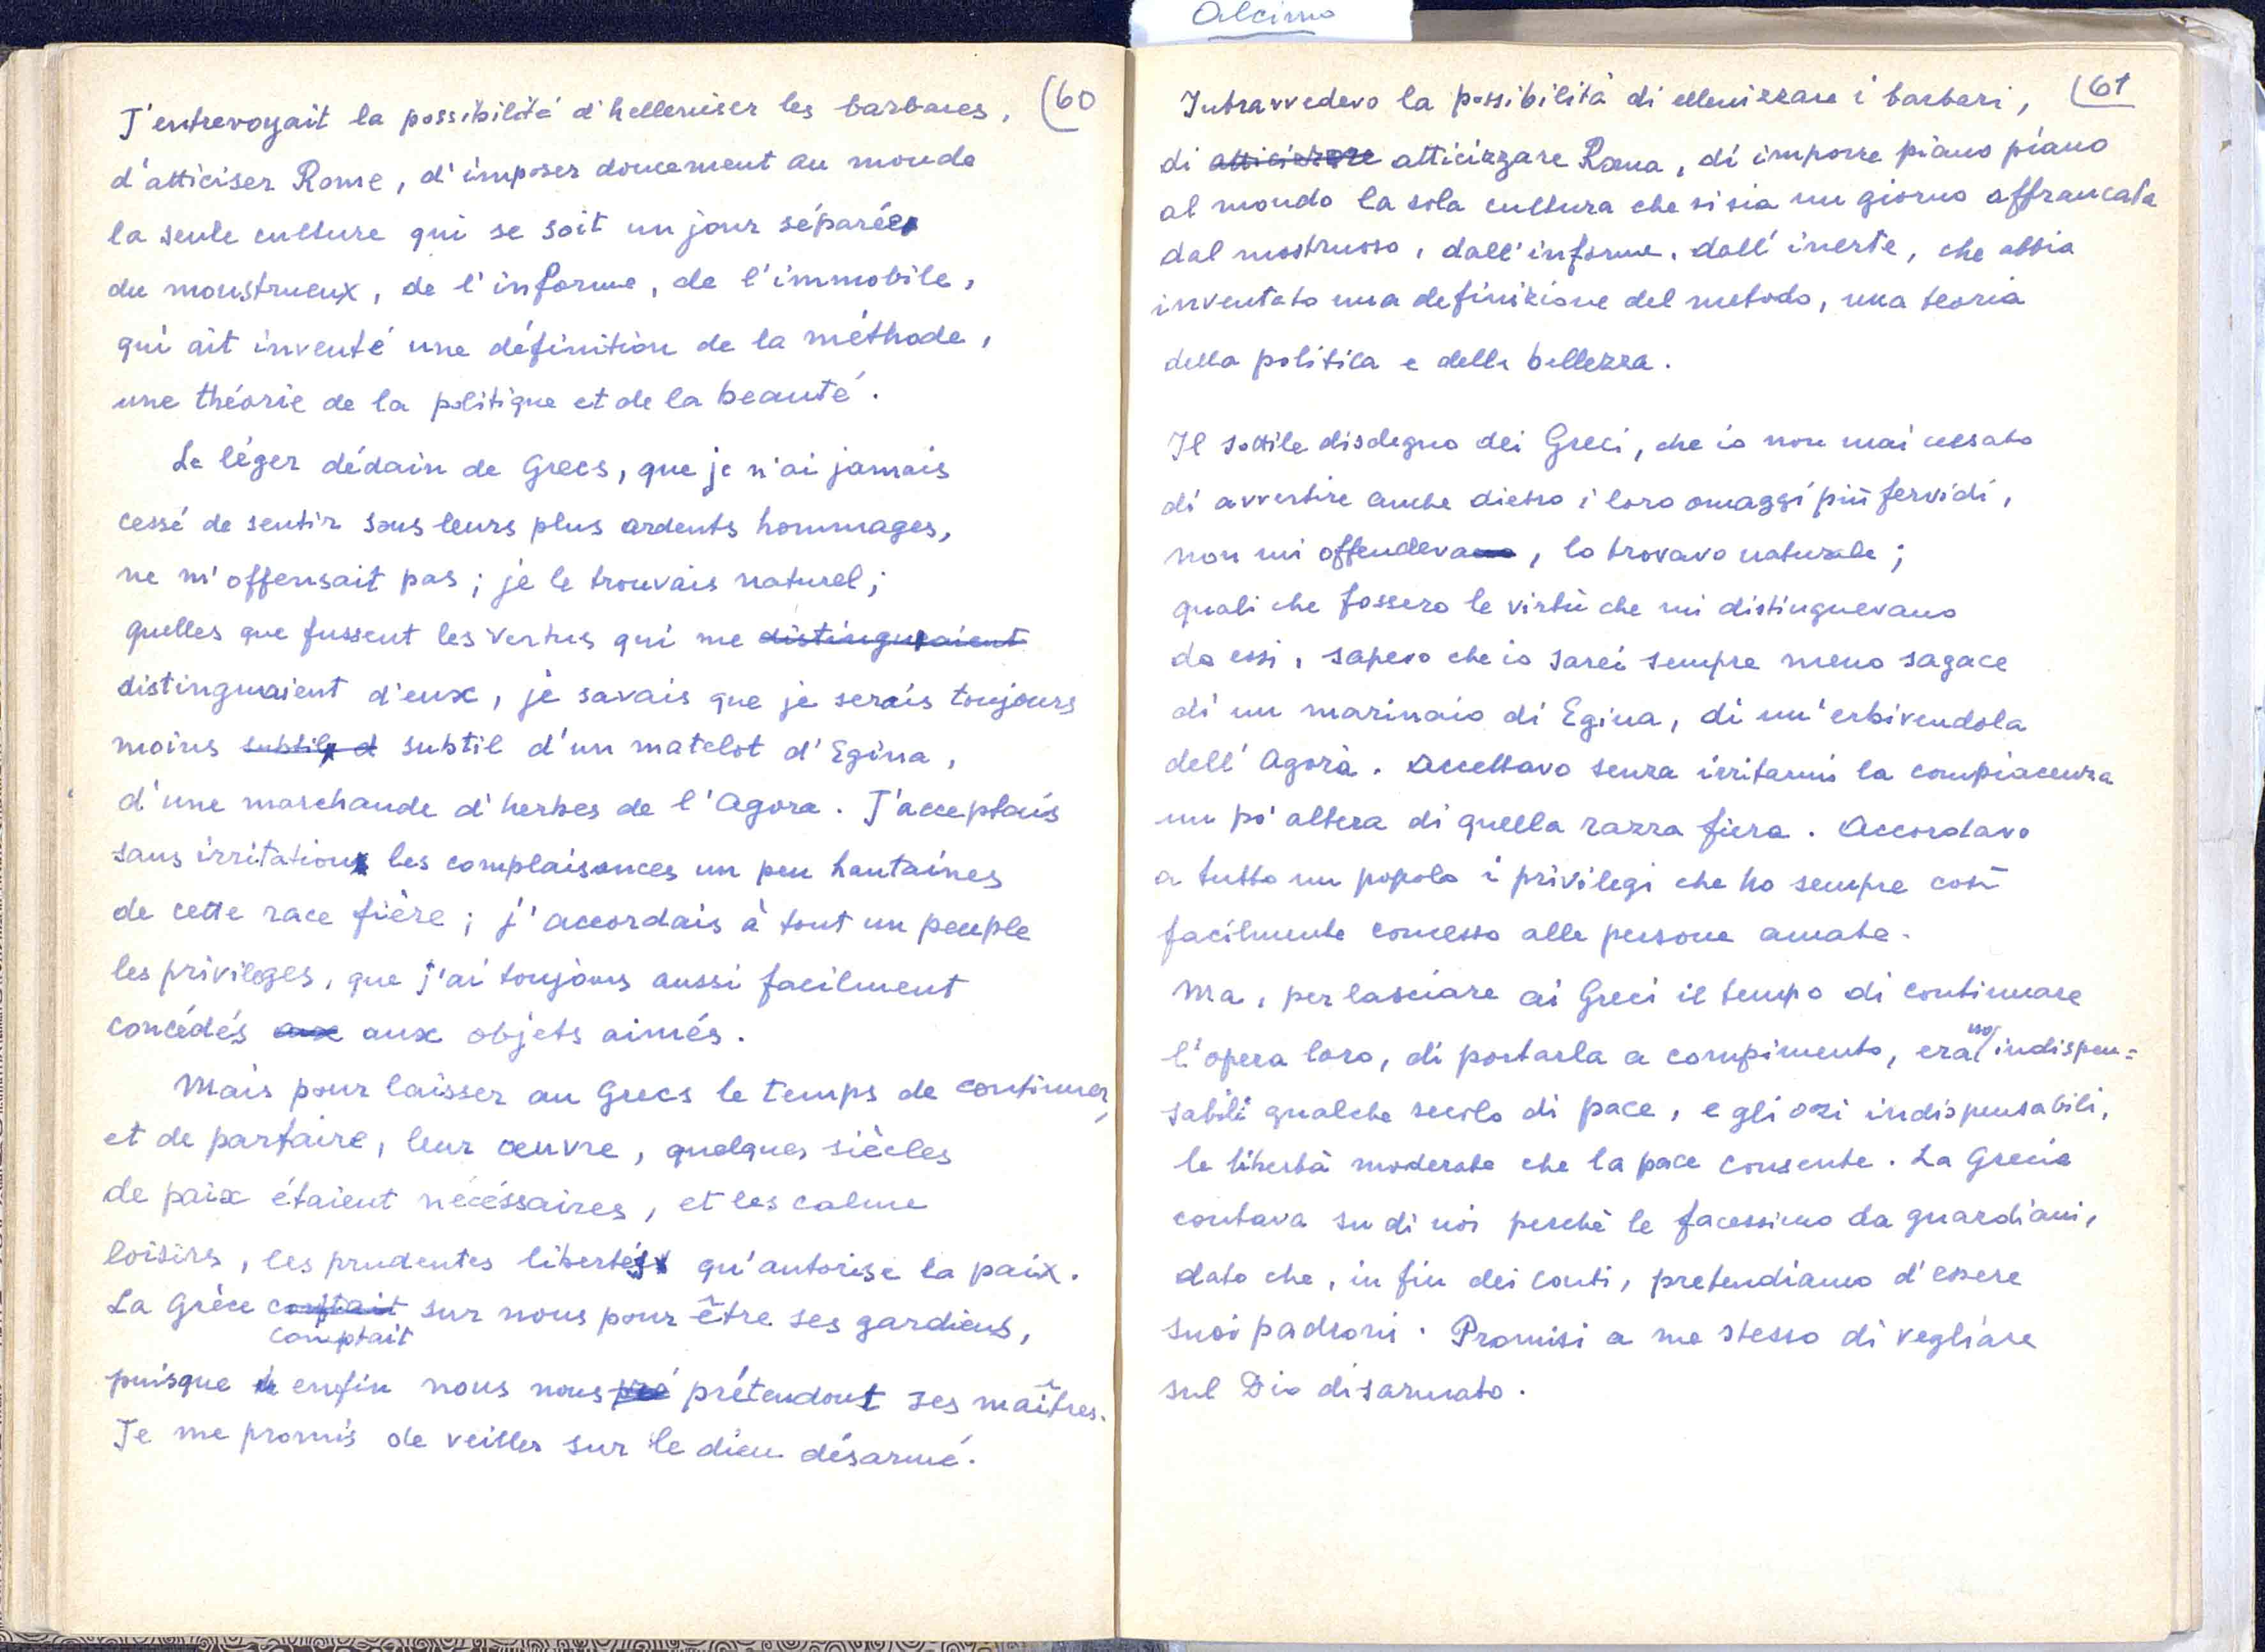 Alcimo
(60
J'entrevoyait la possibilité d'helleniser les barbares,
d'atticiser Rome, d'imposer doucement au monde
la seule culture qui se soit un jour séparée
du monstrueux, de l'informe, de l'immobile,
qui ait inventé une définition de la méthode,
une théorie de la politique et de la beauté.
Le léger dédain de Grecs, que je n'ai jamais
cessé de sentir sous leurs plus ardents hommages,
ne m'offensait pas; je le trouvais naturel;
quelles que fussent les vertus qui me distinguaient
distinguaient d'eux, je savais que je serais toujours
moins subtil d subtil d'un matelot d'Egina,
d'une marchande d'herbes de l'Agora. J'acceptais
sans irritation les complaisances un peu hautaines
de cette race fière; j'accordais à tout un peuple
les privileges, que j'ai toujours aussi facilment
concédés aux aux objets aimés.
Mais pour laisser au Grecs le temps de continuer,
et de parfaire, leur œuvre, quelques siècles
de paix étaient nécéssaires, et les calme
loisirs, les prudentes libertés qu'autorise la paix.
La Grèce comptait sur nous pour être ses gardiens,
puisque enfin nous nous pré prétendont ses maîtres.
Je me promis de veiller sur le dieu désarmé.
(61
Intravvedevo la possibilità di ellenizzare i barbari,
di atticizzare atticizzare Roma, di imporre piano piano
al mondo la sola cultura che si sia un giorno affrancata
dal mostruoso, dall'informe, dall'inerte, che abbia
inventato una definizione del metodo, una teoria
della politica e della bellezza.
Il sottile disdegno dei Greci, che io non mai cessato
di avvertire anche dietro i loro omaggi più fervidi,
non mi offendeva, lo trovavo naturale;
quali che fossero le virtù che mi distinguevano
da essi, sapevo che io sarei sempre meno sagace
di un marinaio di Egina, di un'erbivendola
dell'Agorà. Accettavo senza irritarmi la compiacenza
un pò altera di quella razza fiera. Accordavo
a tutto un popolo i privilegi che ho sempre così
facilmente concesso alle persone amate.
Ma, per lasciare ai Greci il tempo di continuare
l'opera loro, di portarla a compimento, erano indispen=
sabili qualche secolo di pace, e gli ozi indispensabili,
le libertà moderate che la pace consente. La Grecia
contava su di noi perchè le facessimo da guardiani,
dato che, in fin dei conti, pretendiamo d'essere
suoi padroni. Promisi a me stesso di vegliare
sul Dio disarmato.